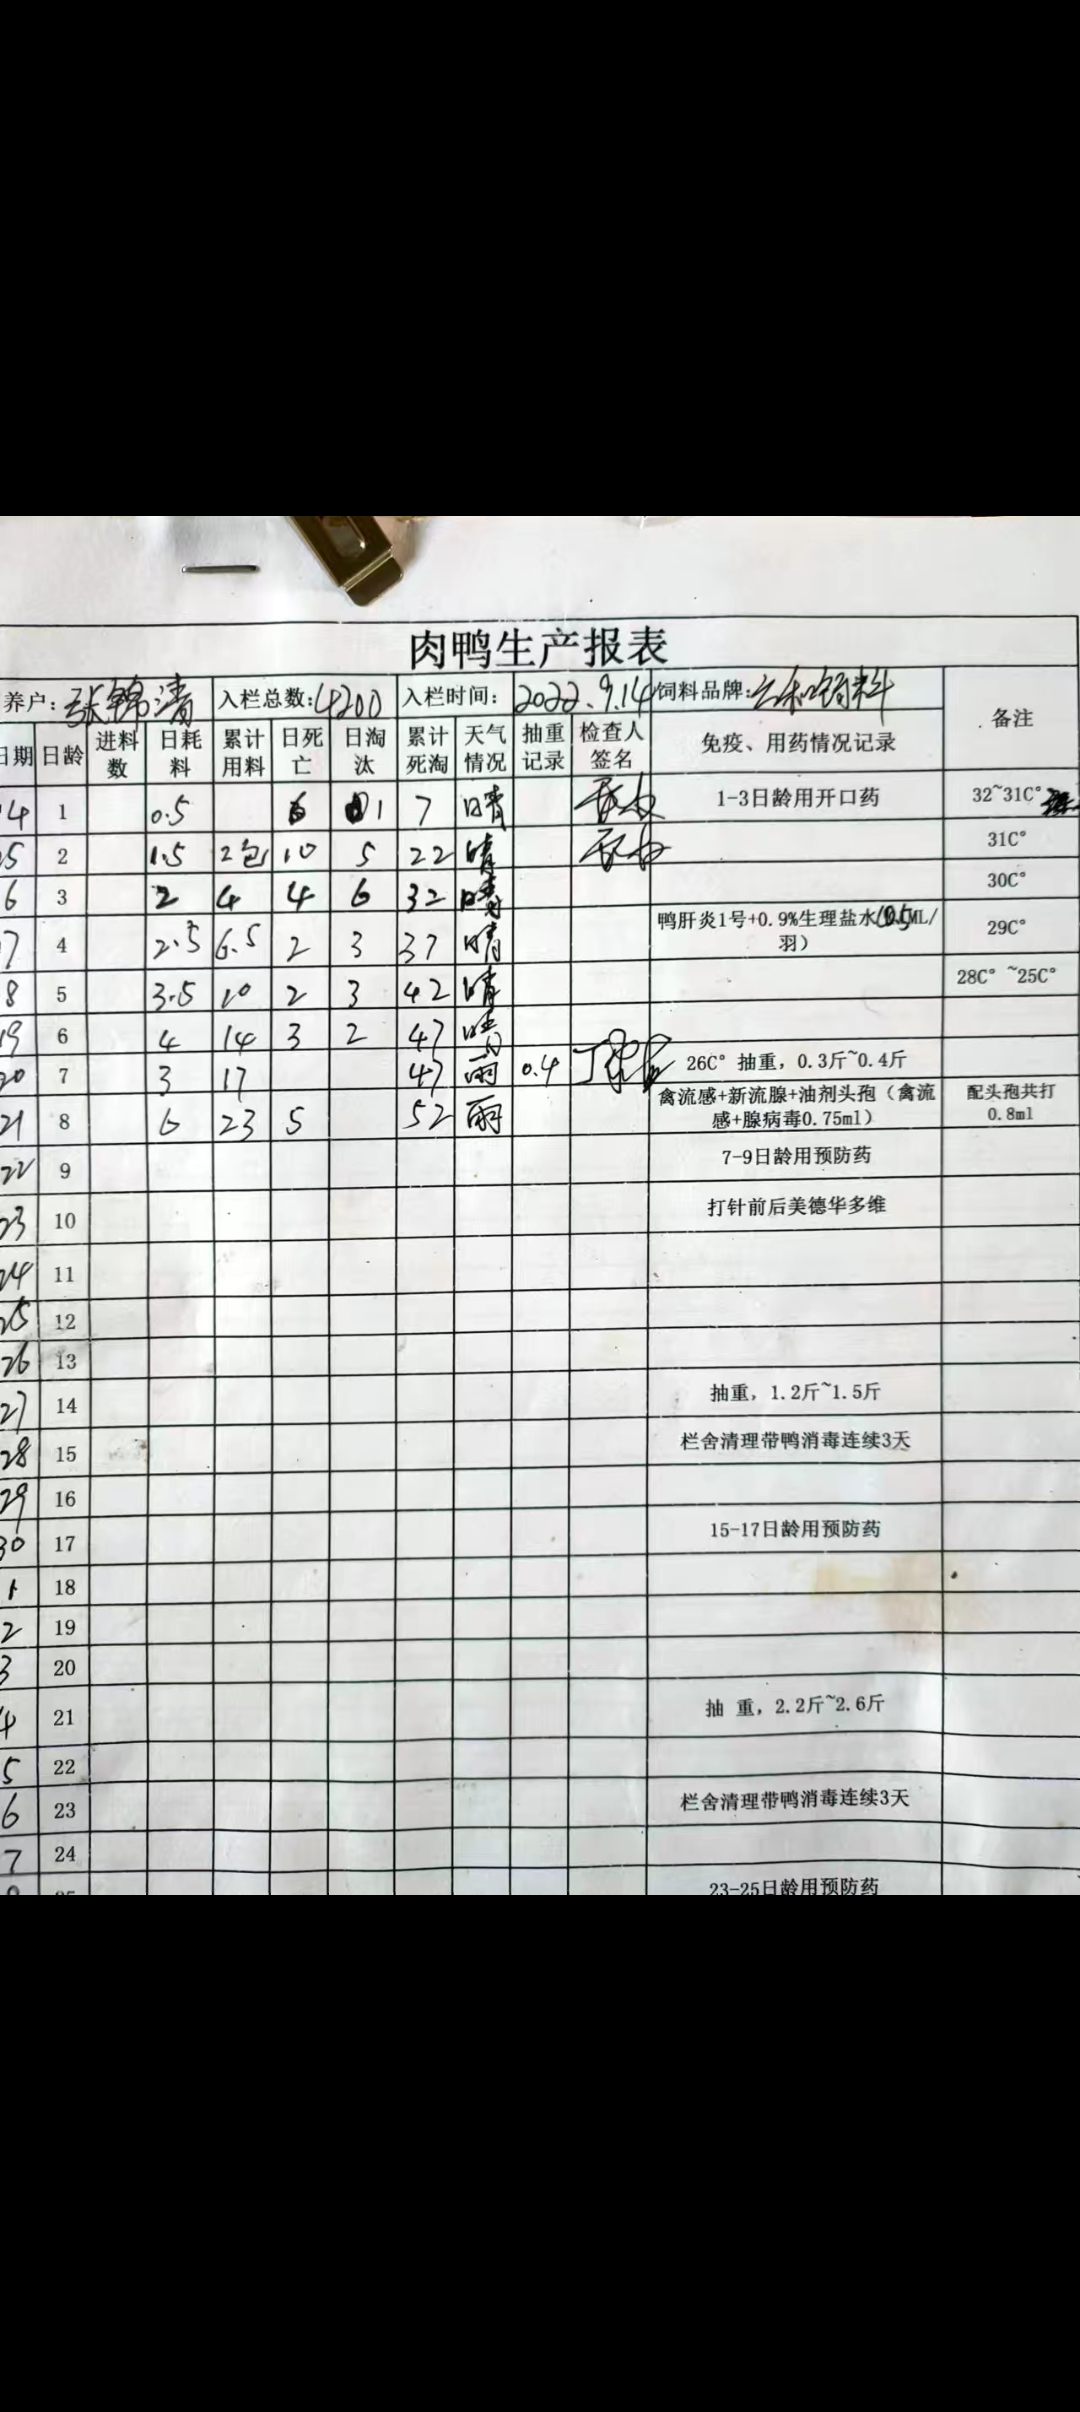 肉鸭生产报表
养户: 张锦清 入栏总数: 4200 入栏时间: 2022.9.14 饲料品牌: 备注
日期 日龄 进料数 日耗料 累计用料 日死亡 日淘汰 累计死淘 天气情况 抽重记录 检查人签名 免疫、用药情况记录
14 1 0.5 6 1 7 晴 1-3日龄用开口药 32~31C°
15 2 1.5 2包 10 5 22 晴 31C°
16 3 2 4 4 6 32 晴 30C°
17 4 2.5 6.5 2 3 37 晴 鸭肝炎1号+0.9%生理盐水(0.5ML/羽) 29C°
18 5 3.5 10 2 3 42 晴 28C°~25C°
19 6 4 14 3 2 47 晴
20 7 3 17 47 雨 0.4 26C° 抽重，0.3斤~0.4斤
21 8 6 23 5 52 雨 禽流感+新流腺+油剂头孢（禽流感+腺病毒0.75ml） 配头孢共打0.8ml
22 9 7-9日龄用预防药
23 10 打针前后美德华多维
24 11
25 12
26 13
27 14 抽重，1.2斤~1.5斤
28 15 栏舍清理带鸭消毒连续3天
29 16
30 17 15-17日龄用预防药
1 18
2 19
3 20
4 21 抽 重，2.2斤~2.6斤
5 22
6 23 栏舍清理带鸭消毒连续3天
7 24
23-25日龄用预防药